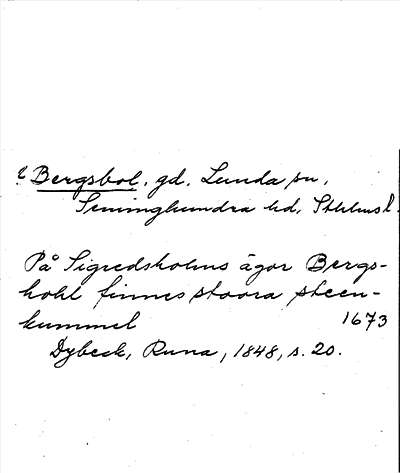 ? Bergsbol, gd, Lunda sn,
Seminghundra hd, Sthlms l.
På Sigredsholms ägor Bergs-
hohl finnes stoora steen-
kummel 1673
Dybeck, Runa, 1848, s. 20.